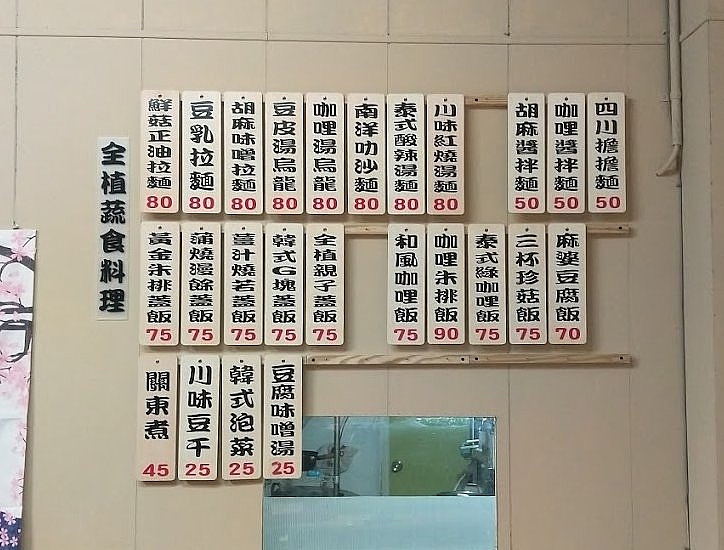 全植蔬食料理
鮮菇正油拉麵
80
豆乳拉麵
80
胡麻味噌拉麵
80
豆皮湯烏龍
80
咖哩湯烏龍
80
南洋叻沙麵
80
泰式酸辣湯麵
80
川味紅燒湯麵
80
胡麻醬拌麵
50
咖哩醬拌麵
50
四川擔擔麵
50
黃金朱排蓋飯
75
蒲燒漫餘蓋飯
75
薑汁燒若蓋飯
75
韓式G塊蓋飯
75
全植親子蓋飯
75
和風咖哩飯
75
咖哩朱排飯
90
泰式綠咖哩飯
75
三杯珍菇飯
75
麻婆豆腐飯
70
關東煮
45
川味豆干
25
韓式泡菜
25
豆腐味噌湯
25